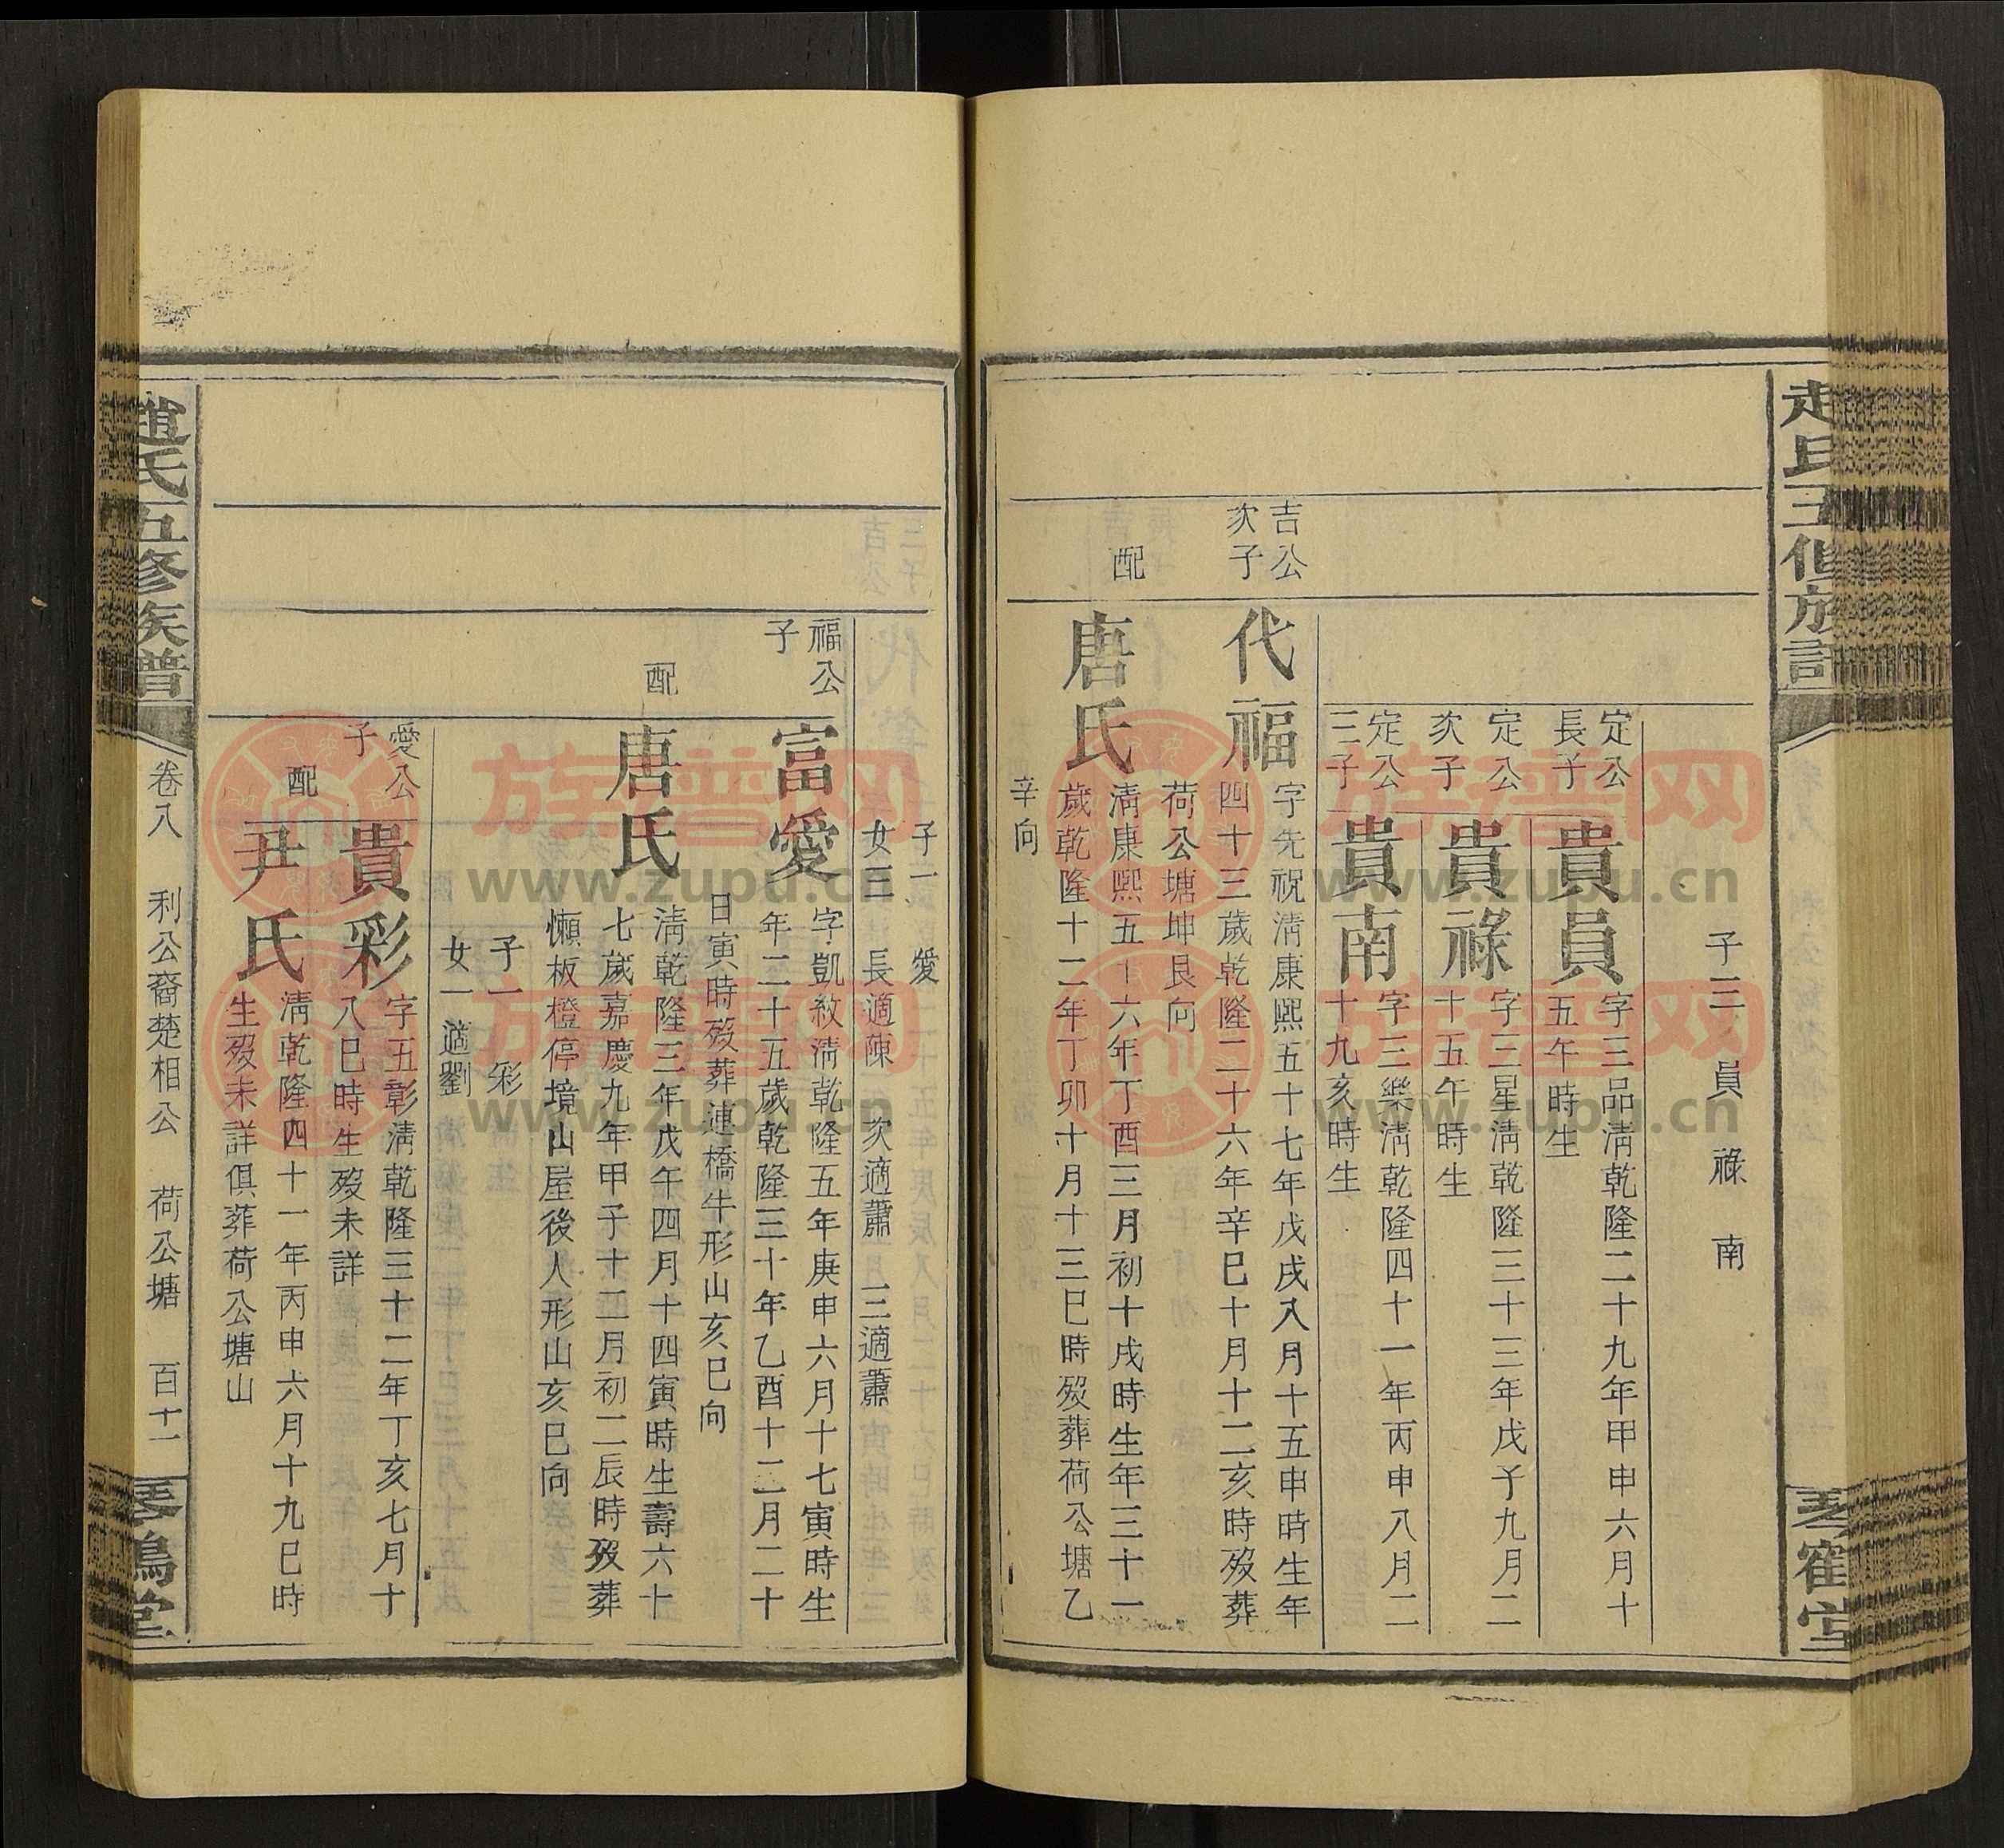 子三 員 祿 南
定公
長子
貴員
字三品淸乾隆二十九年甲申六月十
五午時生
定公
次子
貴祿
字三星淸乾隆三十三年戊子九月二
十五午時生
定公
三子
貴南
字三樂淸乾隆四十一年丙申八月二
十九亥時生
吉公
次子
代福
字先祝淸康熙五十七年戊戌八月十五申時生年
四十三歲乾隆二十六年辛巳十月十二亥時歿葬
荷公塘坤艮向
配
唐氏
淸康熙五十六年丁酉三月初十戌時生年三十一
歲乾隆十二年丁卯十月十三巳時歿葬荷公塘乙
辛向
子一 愛
女三 長適陳 次適蕭 三適蕭
福公
子
富愛
字凱敘淸乾隆五年庚申六月十七寅時生
年二十五歲乾隆三十年乙酉十二月二十
日寅時歿葬連橋牛形山亥巳向
配
唐氏
淸乾隆三年戊午四月十四寅時生壽六十
七歲嘉慶九年甲子十二月初二辰時歿葬
懶板橙停境山屋後人形山亥巳向
子一 彩
女一 適劉
愛公
子
貴彩
字五彰淸乾隆三十二年丁亥七月十
八巳時生歿未詳
配
尹氏
淸乾隆四十一年丙申六月十九巳時
生歿未詳俱葬荷公塘山
趙氏五修族譜
卷八 利公裔楚相公 荷公塘 百十一
琴鶴堂
族譜网
www.zupu.cn
族譜网
www.zupu.cn
族譜网
www.zupu.cn
族譜网
www.zupu.cn